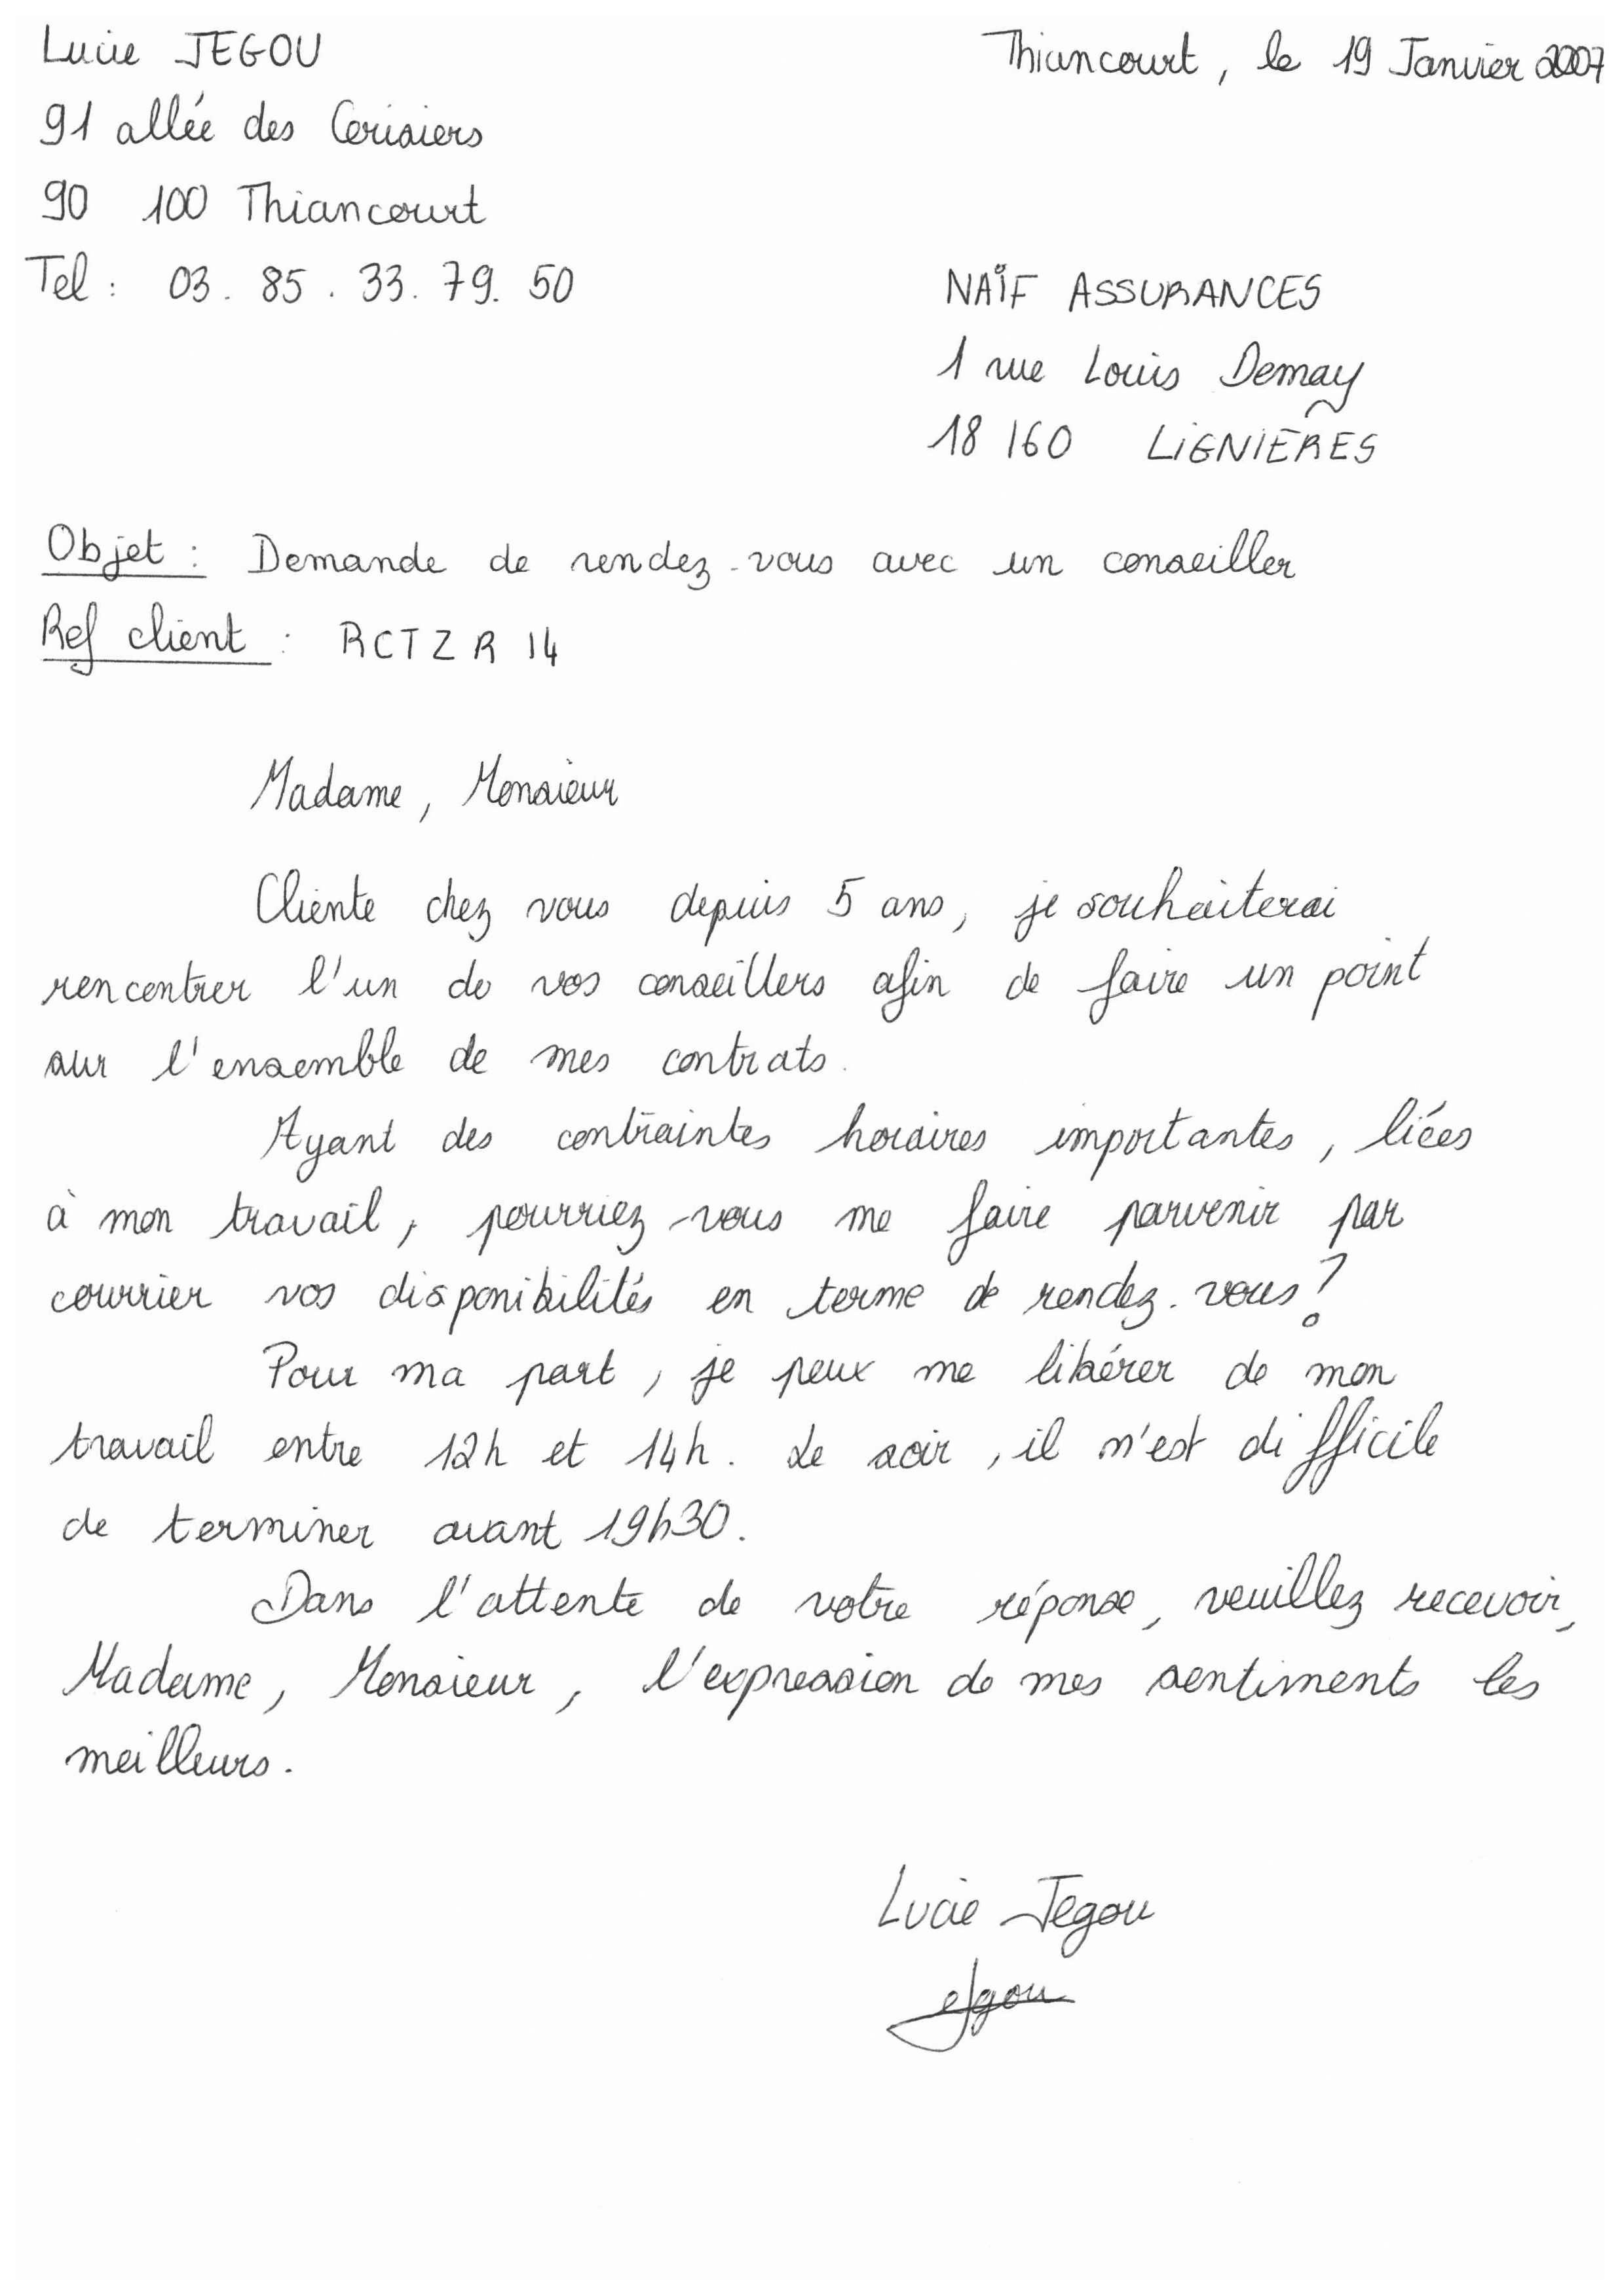 Lucie JEGOU
Thiancourt, le 19 Janvier 2007
91 allée des Cerisiers
90 100 Thiancourt
Tel : 03. 85. 33. 79. 50
NAÏF ASSURANCES
1 rue Louis Demay
18 160 LIGNIÈRES
Objet : Demande de rendez-vous avec un conseiller
Ref client : RCTZR 14
Madame, Monsieur
Cliente chez vous depuis 5 ans, je souhaiterai
rencontrer l'un de vos conseillers afin de faire un point
sur l'ensemble de mes contrats.
Ayant des contraintes horaires importantes, liées
à mon travail, pourriez-vous me faire parvenir par
courrier vos disponibilités en terme de rendez-vous ?
Pour ma part, je peux me libérer de mon
travail entre 12h et 14h. Le soir, il m'est difficile
de terminer avant 19h30.
Dans l'attente de votre réponse, veuillez recevoir,
Madame, Monsieur, l'expression de mes sentiments les
meilleurs.
Lucie Jegou
Jegou